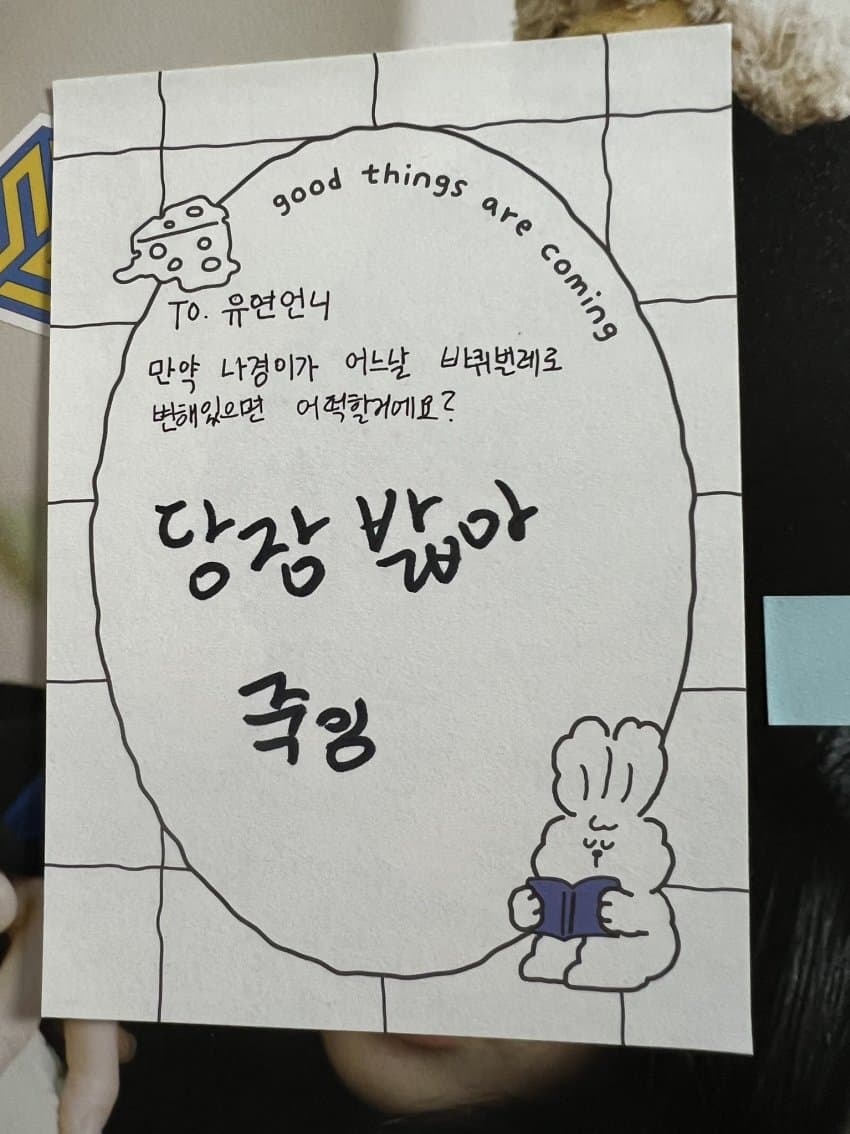 good things are coming
To. 유연언니
만약 나경이가 어느날 바퀴벌레로
변해있으면 어떡할거에요?
당장 밟아
죽임